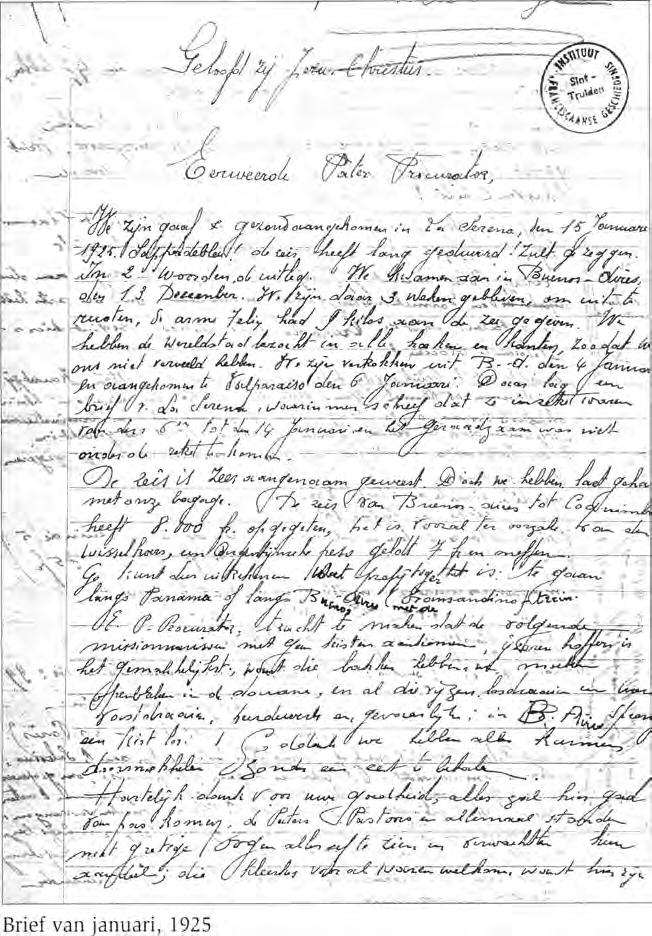 Geloofd zij Jezus Christus.
INSTITUUT SINT-FRANCISCAANSE GESCHIEDENIS
Sint-
Truiden
Eerweerde Pater Procurator,
We zijn gaaf & gezond aangekomen in La Serena, den 15 Januari
1925. Sapperdebleu! de reis heeft lang geduurd! Zult g zeggen.
In 2 woorden de uitleg. We kwamen aan in Buenos-Aires,
den 13 December. We zijn daar 3 weken gebleven, om uit te
rusten, de arme Felix had 9 kilos aan de zee gegeven. We
hebben de wereldstad bezocht in alle hoeken en kanten, zoodat we
ons niet verveeld hebben. We zijn vertrokken uit B-A. den 4 Januari
en aangekomen te Valparaiso den 6 Januari. Daar lag een
brief v. La Serena, waarin men schreef dat ze in waren
van den 5en tot den 14 Januari en het was niet
onder de te komen.
De reis is zeer aangenaam geweest. Doch we hebben last gehad
met onze bagage. De reis van Buenos-aires tot Coquimbo
heeft 8.000 fr. opgegeten, het is vooral ter oorzake van den
wisselkoers, een Argentijnsche peso geldt 7 fr en
Ge kunt dus uitrekenen wat het is: te gaan
langs Panama of langs Buenos-Aires met den Transandino trein.
E. P. Procurator, tracht te maken dat de volgende
missionarissen met geen kisten aankomen, koffers is
het gemakkelijkst, want die bakken hebben we moeten
openbreken in de douane, en al die vijzen losdraaien en weer
vastdraaien, en gevaarlijk; in B. Aires sprong
een kist los! Goddank we hebben alles kunnen
doorsmokkelen zonder een cent te betalen.
Hartelijk dank voor uwe goedheid, alles zal hier goed
van pas komen, de Paters Pastoors en allemaal stonden
met gretige oogen alles af te zien en verwachtten hun
aandeel; die vooral waren welkom, want hier zijn
Brief van januari, 1925